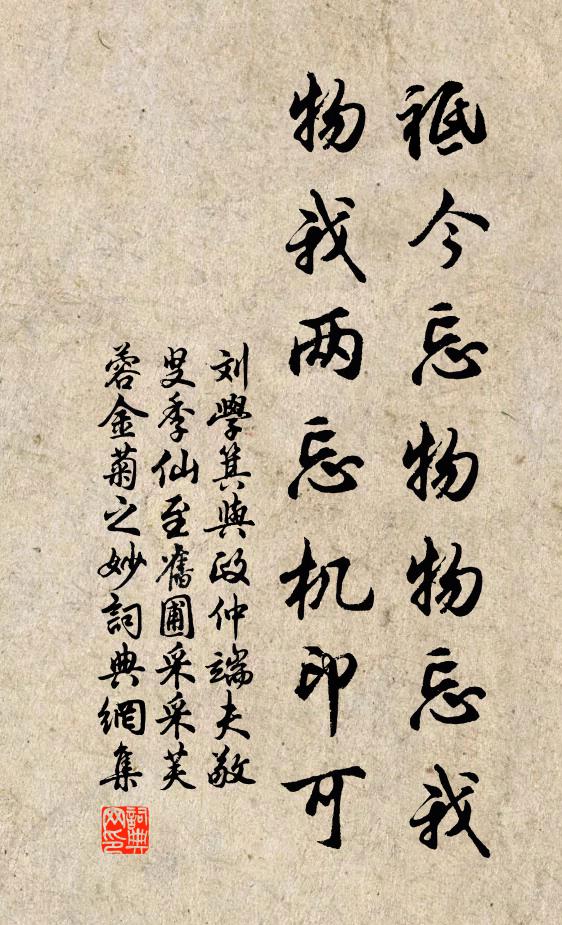 祗今忘物物忘我
物我两忘机印可
刘學箕與政仲端夫敬
叟季仙至舊圃采采芙
蓉金菊之妙詞典網集
詞典
网印